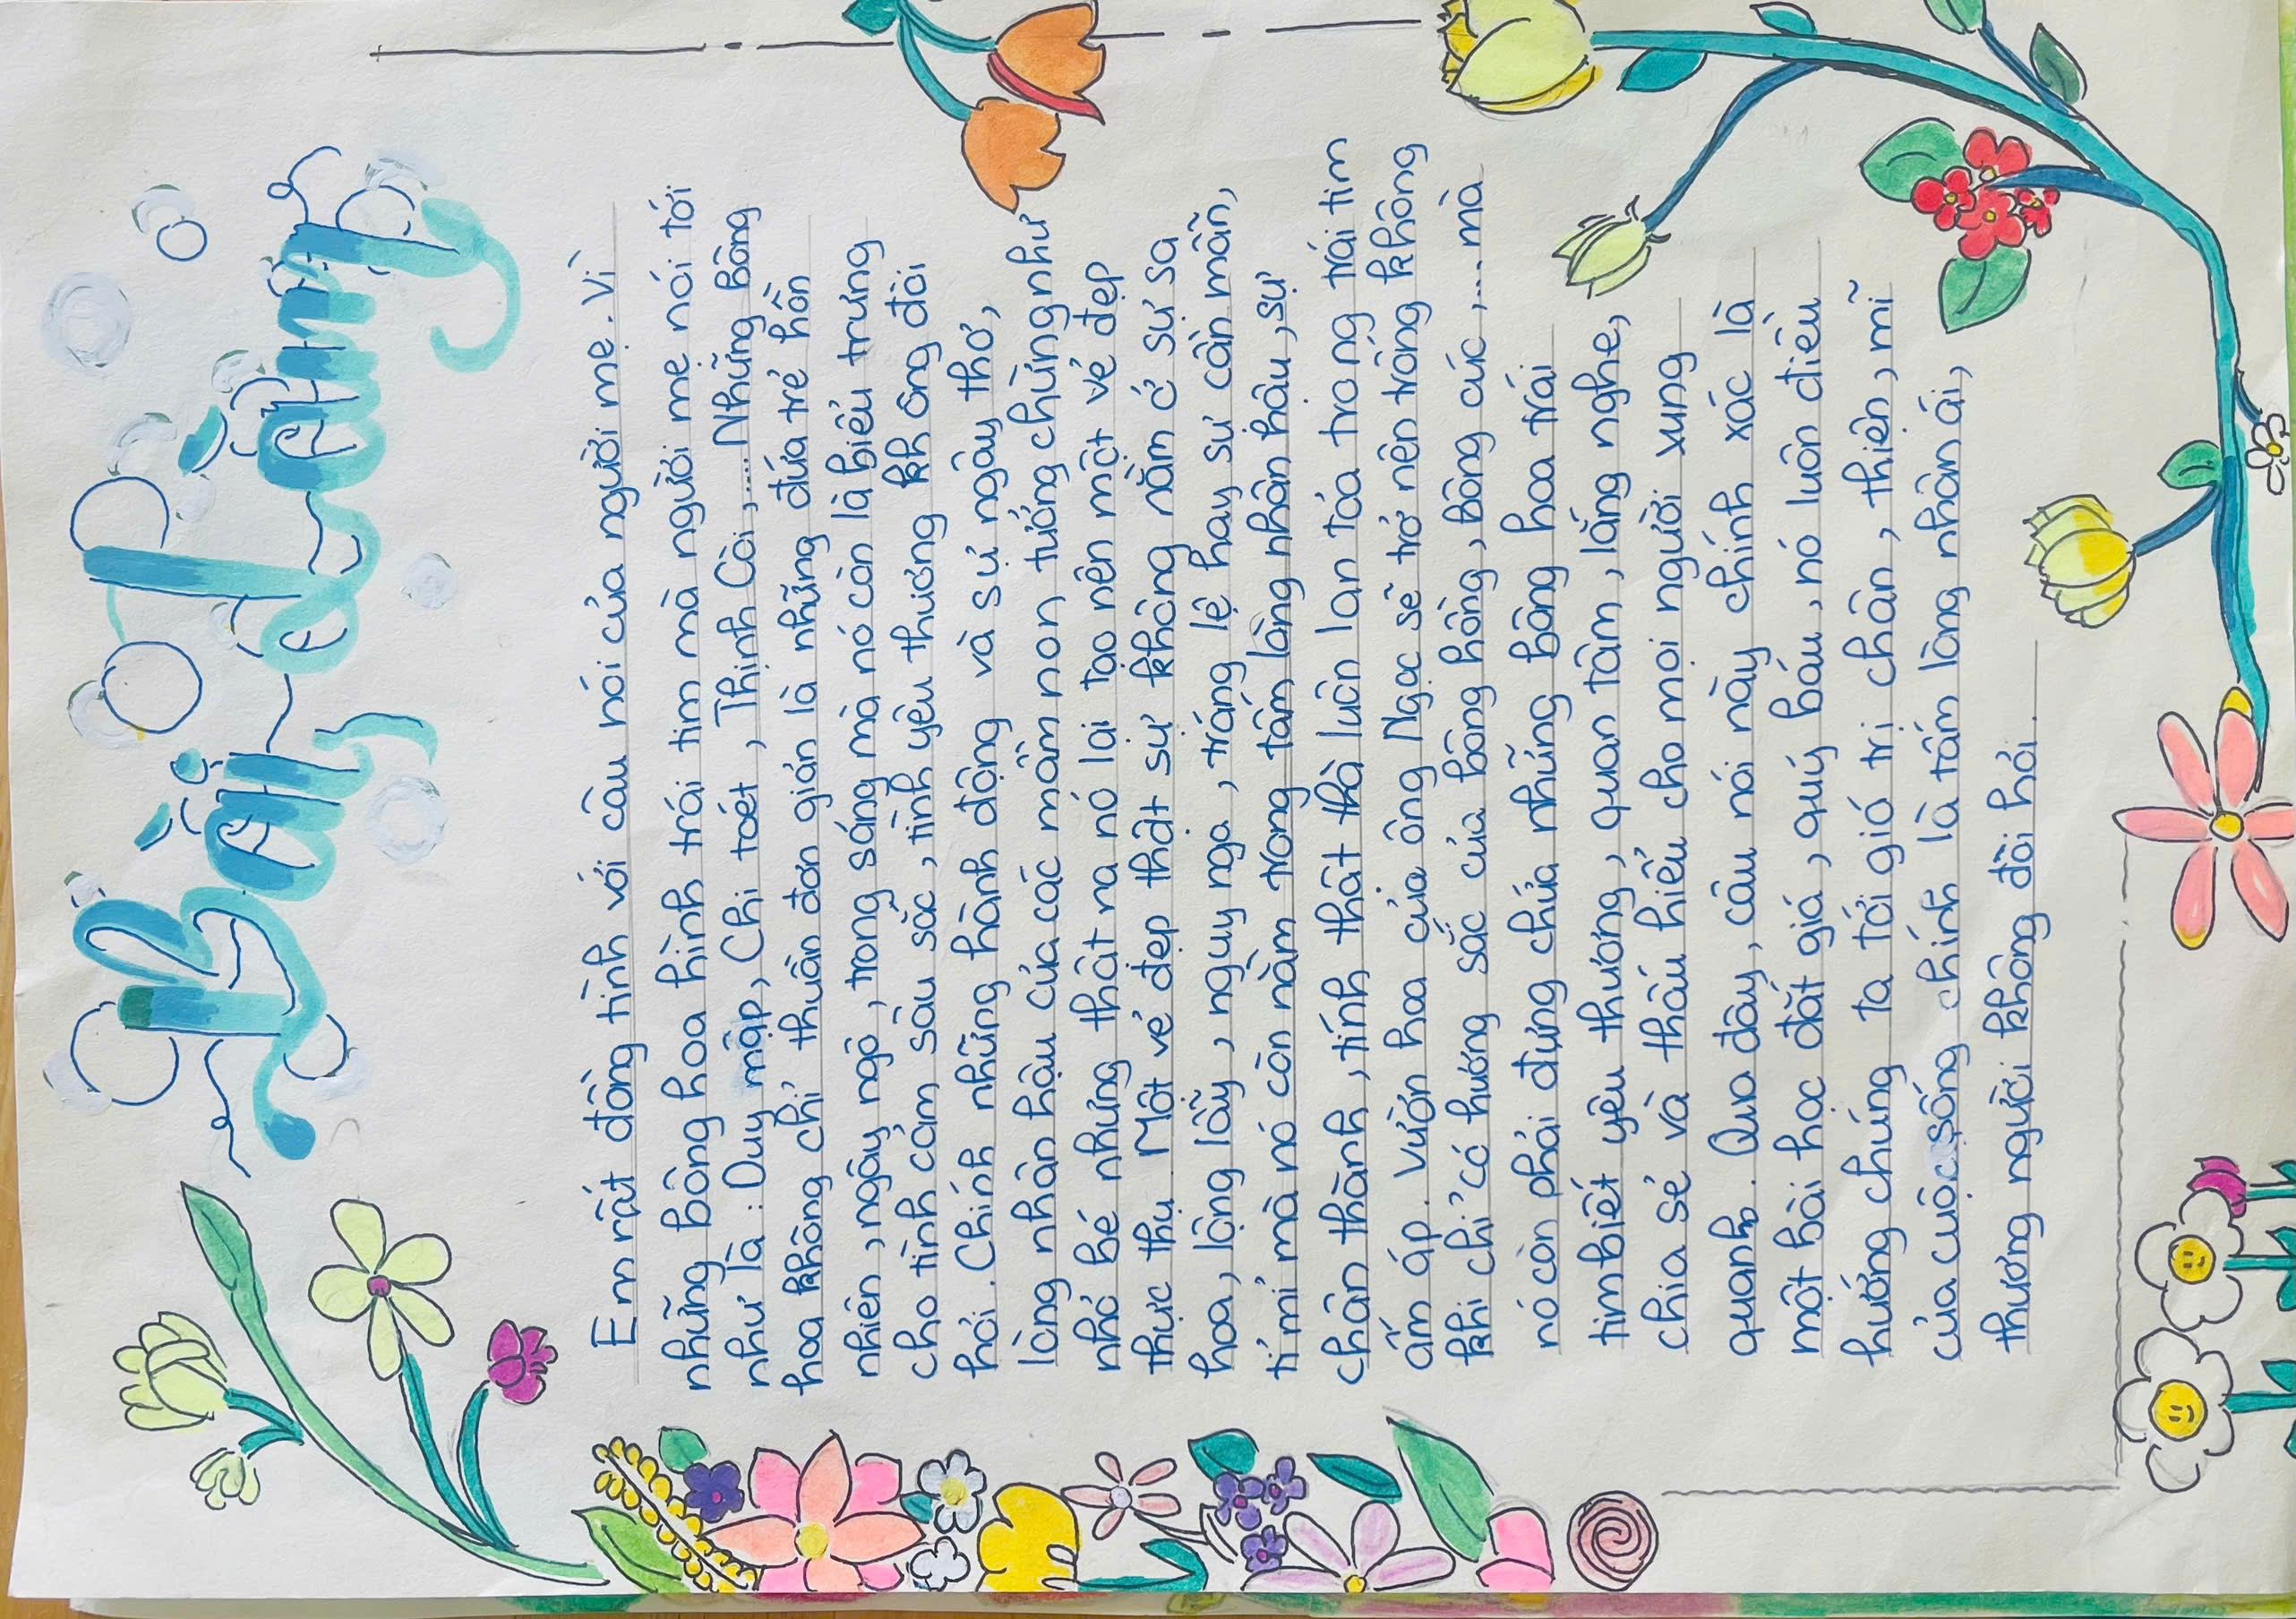 Bài Làm
Em rất đồng tình với câu nói của người mẹ. Vì
những bông hoa hình trái tim mà người mẹ nói tới
như là: Duy mập, Chi toét, Thịnh Còi,.... Những bông
hoa không chỉ thuần đơn giản là những đứa trẻ hồn
nhiên, ngây ngô, trong sáng mà nó còn là biểu trưng
cho tình cảm sâu sắc, tình yêu thương không đòi
hỏi. Chính những hành động và sự ngây thơ,
lòng nhân hậu của các mầm non tưởng chừng như
nhỏ bé nhưng thật ra nó lại tạo nên một vẻ đẹp
thực thụ. Một vẻ đẹp thật sự không nằm ở sự sa
hoa, lộng lẫy, nguy nga, tráng lệ hay sự cần mẫn,
tỉ mỉ mà nó còn nằm trong tấm lòng nhân hậu, sự
chân thành, tính thật thà luôn lan tỏa trong trái tim
ấm áp. Vườn hoa của ông Ngạc sẽ trở nên trống không
khi chỉ có hương sắc của bông hồng, bông cúc,... mà
nó còn phải đựng chứa những bông hoa trái
tim biết yêu thương, quan tâm, lắng nghe,
chia sẻ và thấu hiểu cho mọi người xung
quanh. Qua đây, câu nói này chính xác là
một bài học đắt giá, quý báu, nó luôn điều
hướng chúng ta tới gió trị chân, thiện, mĩ
của cuộc sống chính là tấm lòng nhân ái,
thương người không đòi hỏi.